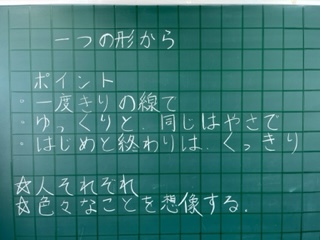 一つの形から
ポイント
・一度きりの線で
・ゆっくりと、同じはやさで
・はじめと終わりは、くっきり
☆人それぞれ
☆色々なことを想像する.